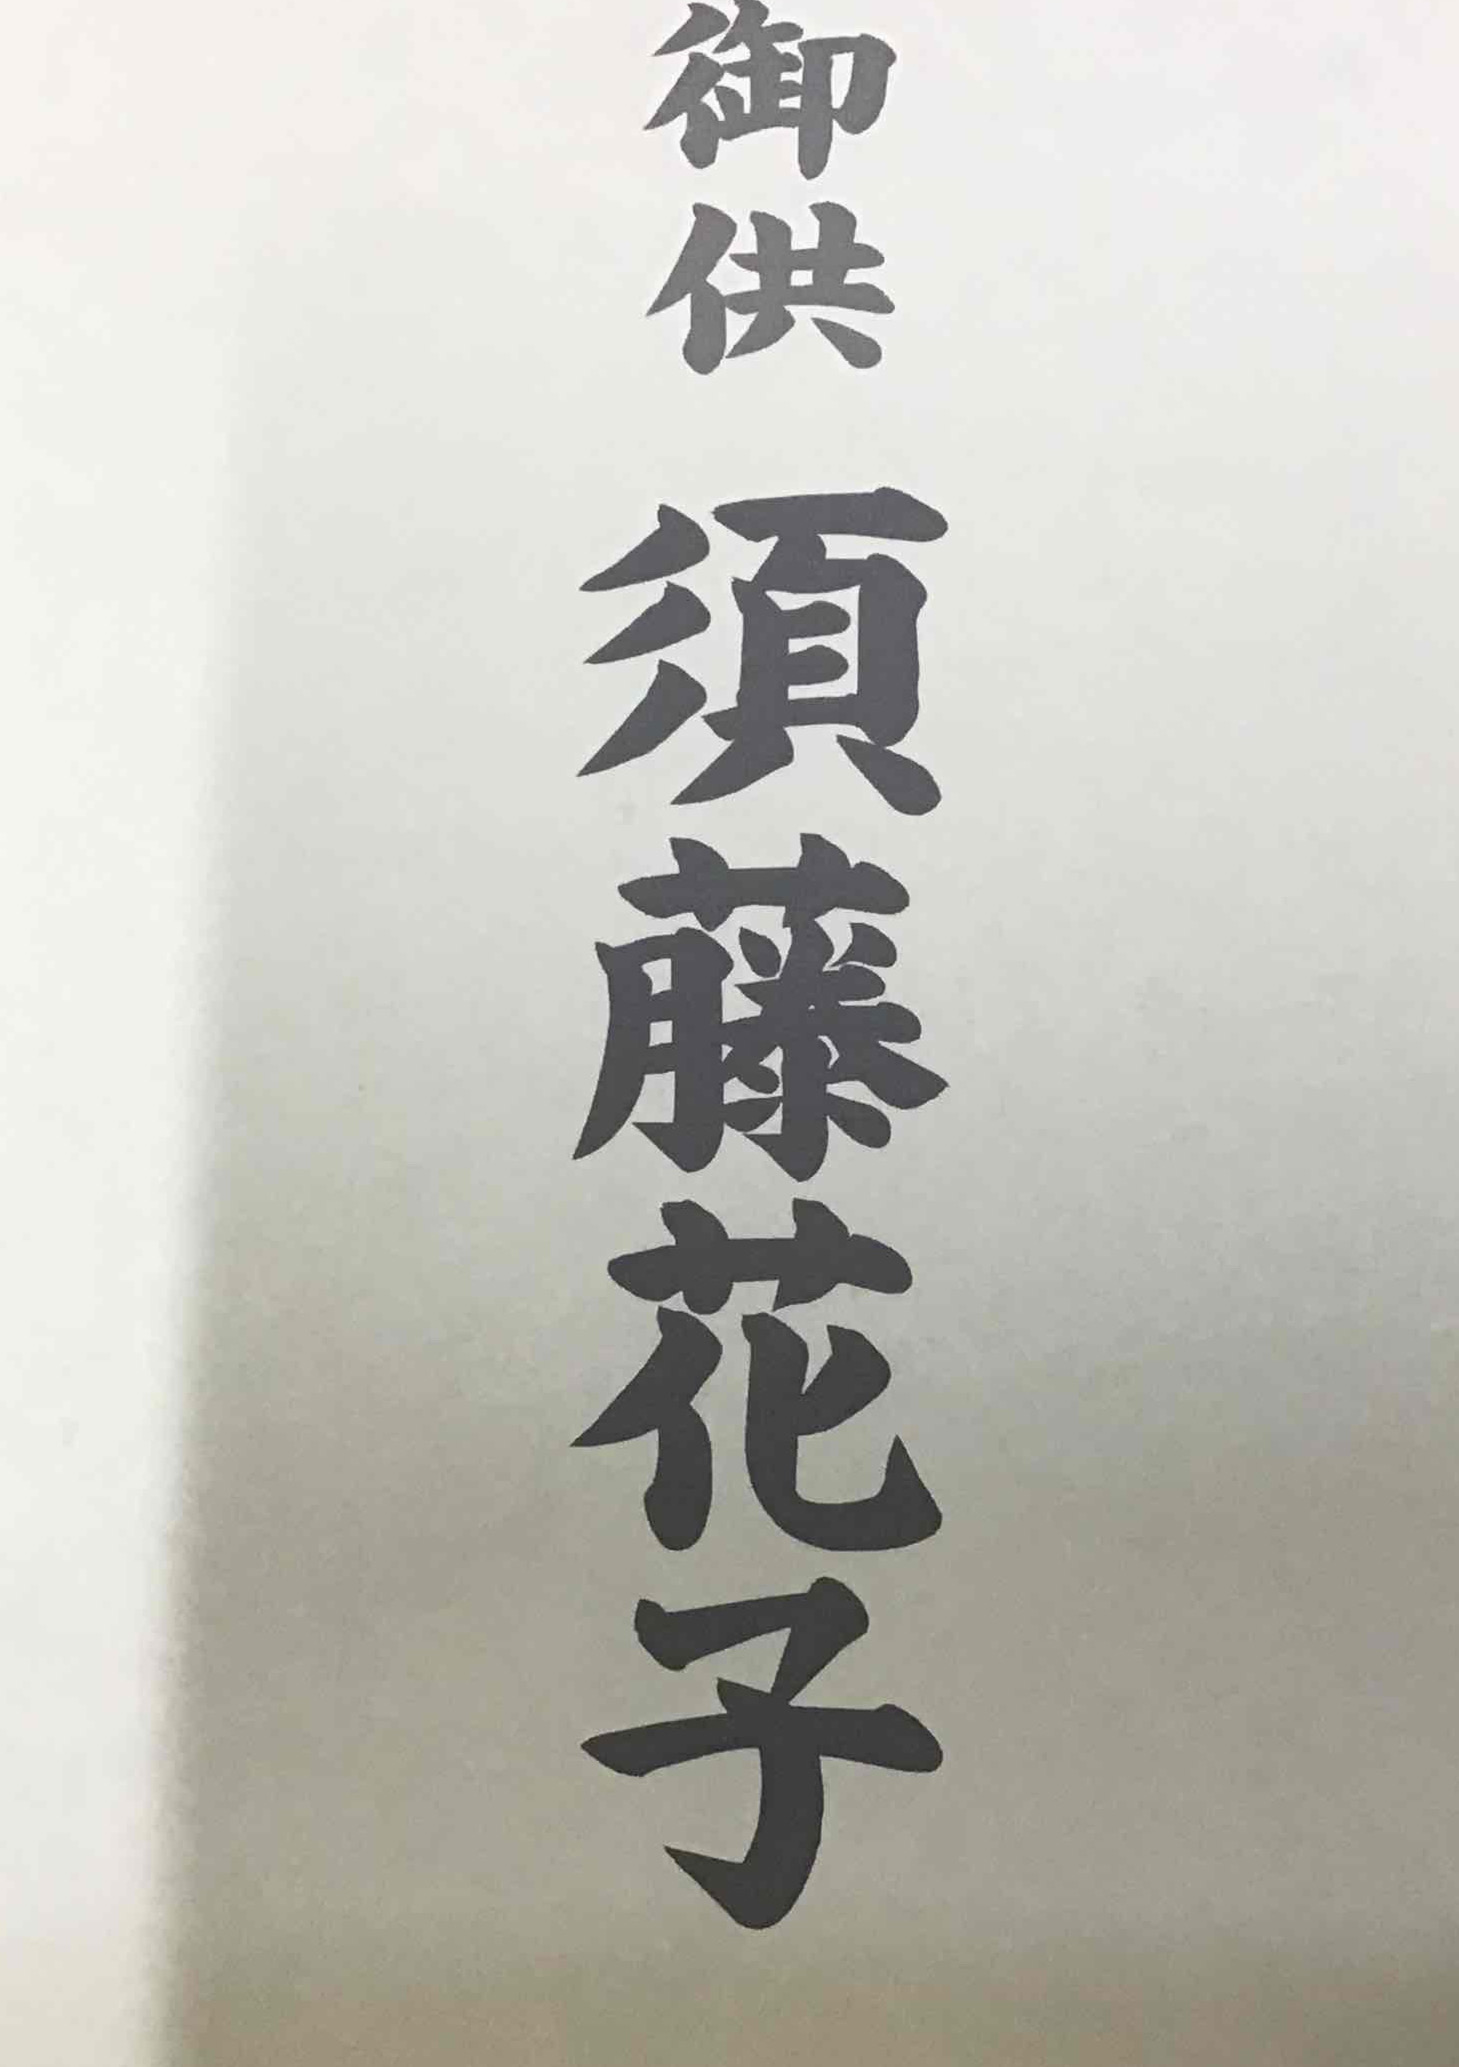 御供 須藤花子